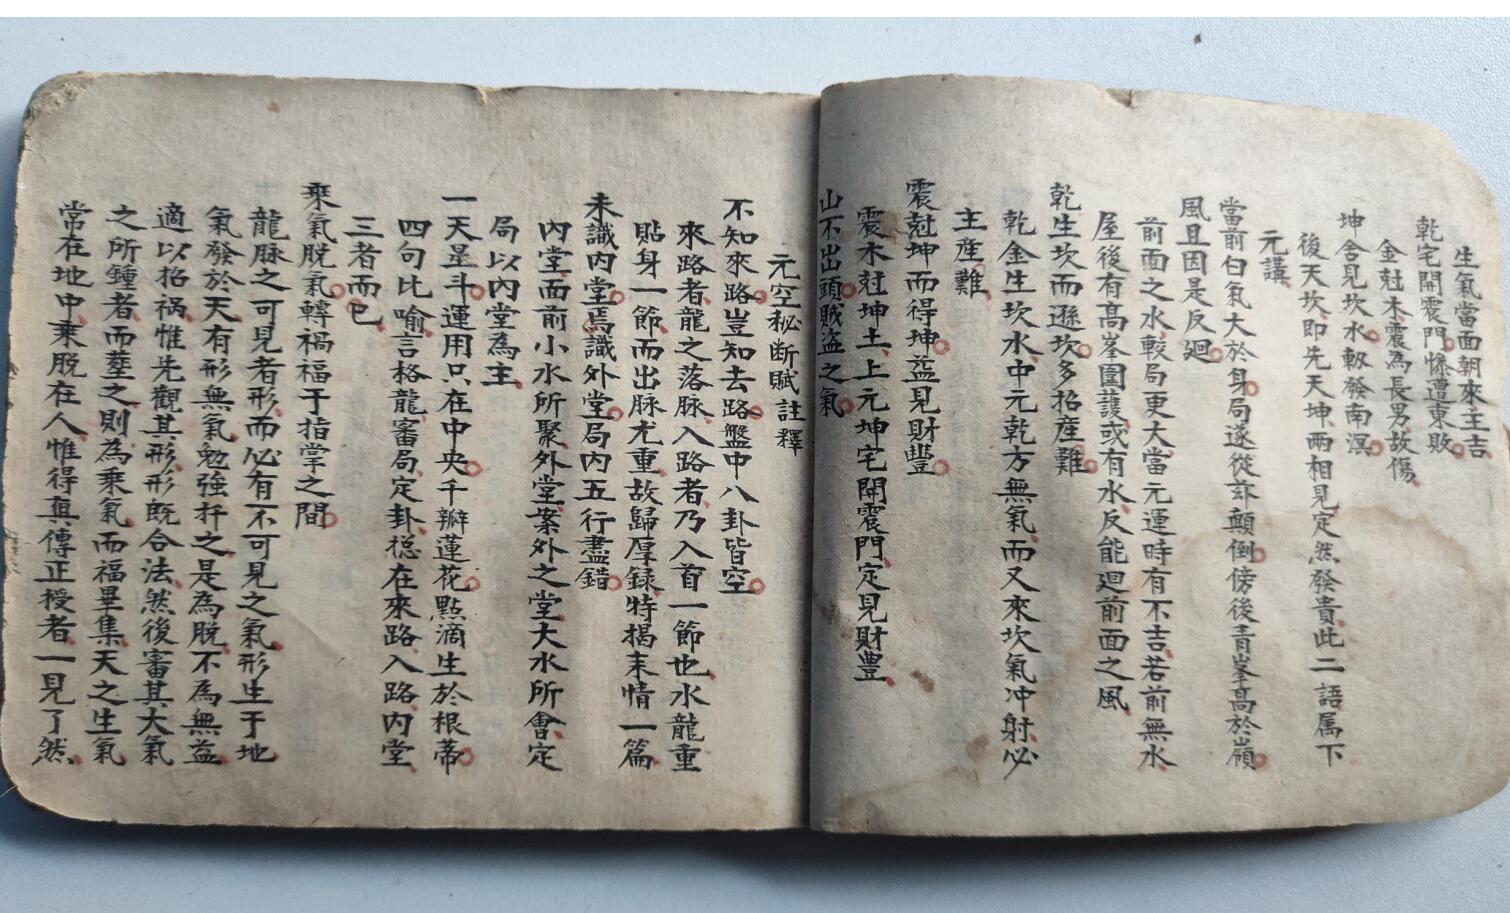 生氣當面朝來主吉
乾宅開震門慘遭東敗
金尅木震為長男故傷
坤舍見坎水軔發南溟
後天坎即先天坤兩相見定然發貴此二語属下
元講
當前白氣大於身局遂從茲顛倒傍後青峯高於嶺
風且因是反廻
前面之水較局更大當元運時有不吉若前無水
屋後有高峯圍護或有水反能廻前面之風
乾生坎而遜坎多招產難
乾金生坎水中元乾方無氣而又來坎氣冲射必
主產難
震尅坤而得坤益見財豐
震木尅坤土上元坤宅開震門定見財豐
山不出頭賊盜之氣
元空秘断賦註釋
不知來路豈知去路盤中八卦皆空
來路者龍之落脉入路者乃入首一節也水龍重
貼身一節而出脉尤重故歸厚録特揭末情一篇
未識內堂焉識外堂局內五行盡錯
內堂面前小水所聚外堂案外之堂大水所會定
局以內堂為主
一天星斗運用只在中央千瓣蓮花點滴生於根蒂
四句比喻言格龍審局定卦總在來路入路內堂
三者而已
乘氣脱氣轉禍福于指掌之間
龍脉之可見者形而必有不可見之氣形生于地
氣發於天有形無氣勉強扦之是為脱不為無益
適以招禍惟先觀其形形既合法然後審其大氣
之所鍾者而塟之則為乘氣而福畢集天之生氣
常在地中乘脱在人惟得真傳正授者一見了然